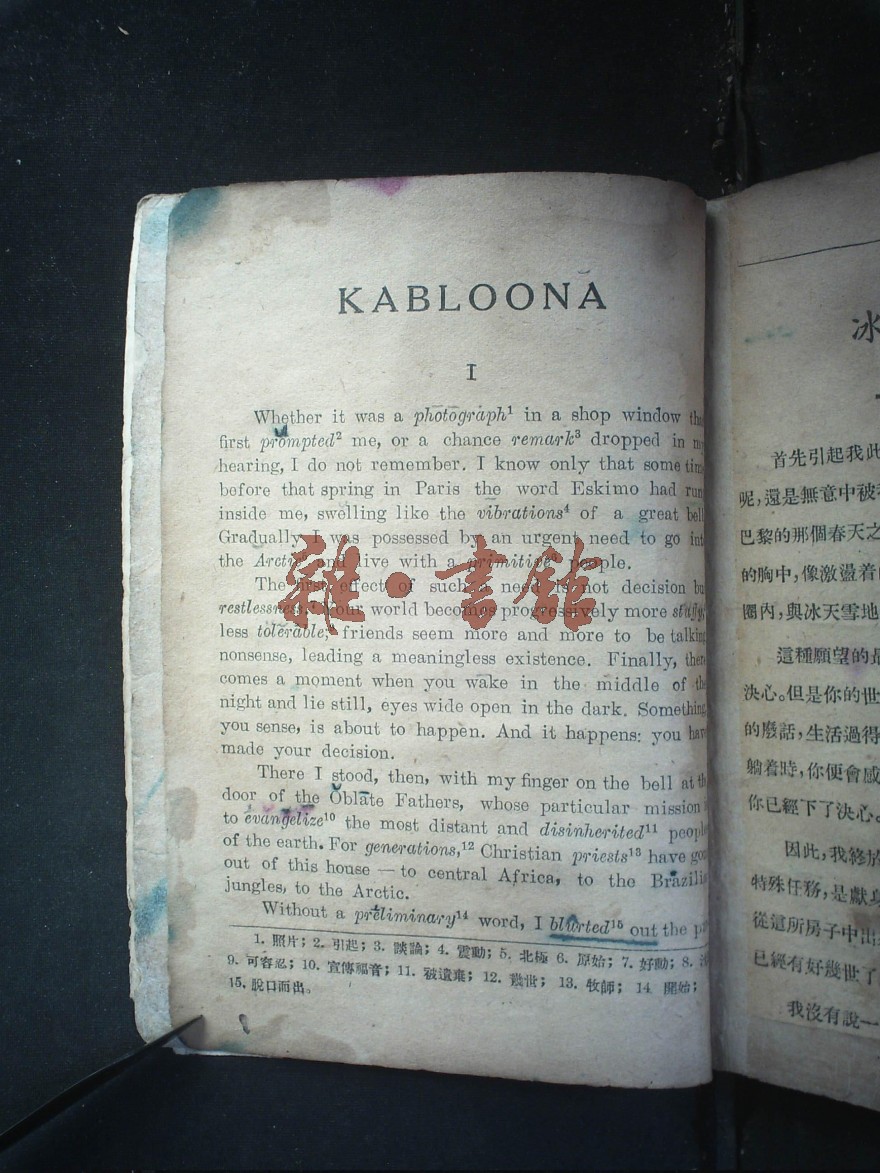 KABLOONA
I
Whether it was a photograph¹ in a shop window
first prompted² me, or a chance remark³ dropped in
hearing, I do not remember. I know only that some time
before that spring in Paris the word Eskimo had run
inside me, swelling like the vibrations⁴ of a great bell
Gradually I was possessed by an urgent need to go
the Arctic⁵ and live with a primitive⁶ people.
The first effect of such a need is not decision
restlessness.⁷ Your world becomes progressively more stuffy,
less tolerable;⁹ friends seem more and more to be talking
nonsense, leading a meaningless existence. Finally, there
comes a moment when you wake in the middle of the
night and lie still, eyes wide open in the dark. Something,
you sense, is about to happen. And it happens: you have
made your decision.
There I stood, then, with my finger on the bell at the
door of the Oblate Fathers, whose particular mission
to evangelize¹⁰ the most distant and disinherited¹¹
of the earth. For generations,¹² Christian priests¹³ have
out of this house — to central Africa, to the
jungles, to the Arctic.
Without a preliminary¹⁴ word, I blurted¹⁵ out the
1. 照片; 2. 引起; 3. 談論; 4. 震動; 5. 北極 6. 原始; 7. 好動; 8.
9. 可容忍; 10. 宣傳福音; 11. 被遺棄; 12. 幾世; 13. 牧師; 14. 開始;
15. 脫口而出。
冰
首先引起我此
呢,還是無意中被
巴黎的那個春天之
的胸中,像激盪着
圈內,與冰天雪地
這種願望的是
決心。但是你的世
的廢話,生活過得
躺着時,你便會感
你已經下了決心。
因此,我終於
特殊任務,是獻身
從這所房子中出
已經有好幾世了
我沒有說一
雜·書館